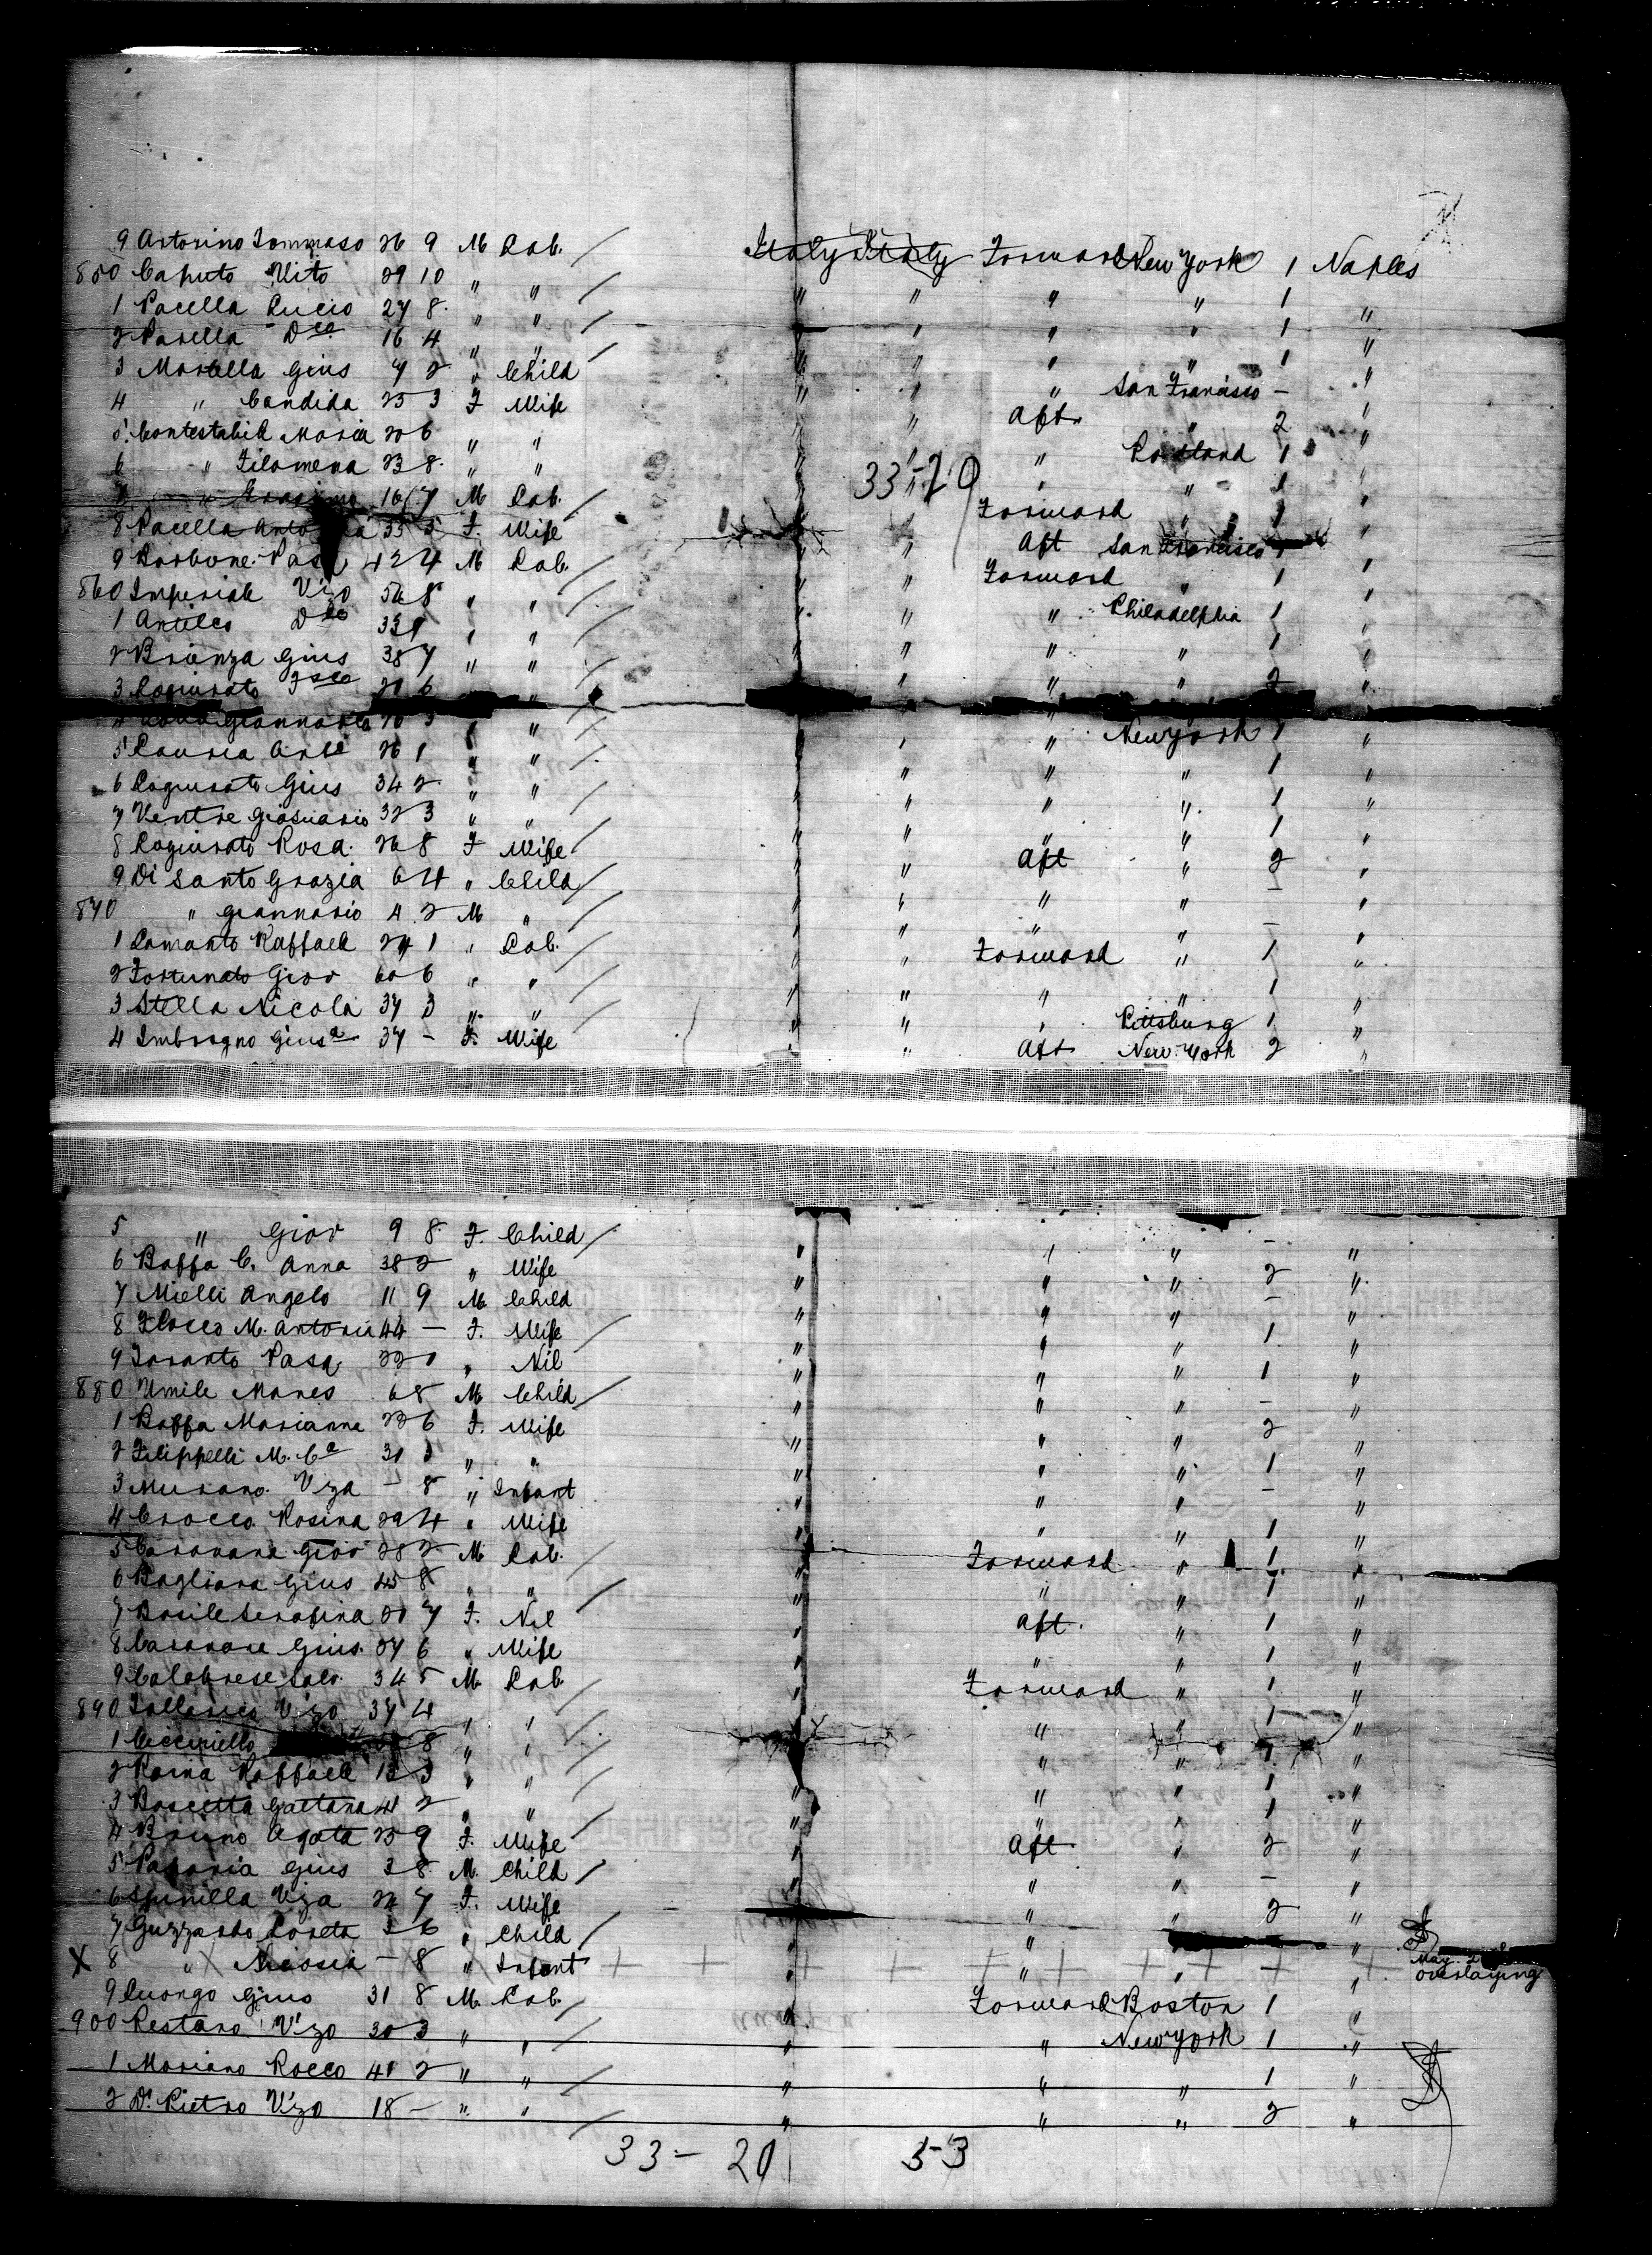 9 Antorino Tommaso 26 9 M Lab. / Italy Italy Forward New York 1 Naples
850 Caputo Vito 29 10 " " / " " " " 1 "
1 Pacella Lucio 27 8 " " / " " " " 1 "
2 Pasella Dco 16 4 " " / " " " " 1 "
3 Morella Gius 7 2 " Child " " " San Francisco - "
4 " Candida 25 3 F Wife " " Aft. " 2 "
5 Contestabile Maria 20 6 " " " " " Portland 1 "
6 " Filomena 23 8 " " " " " " 1 "
7 " 16 7 M Lab. / " " Forward " 1 "
33-20
8 Pacella Antonia 33 5 F. Wife " " Aft San Francisco 1 "
9 Carbone Pasq 42 4 M Lab. / " " Forward " 1 "
860 Imperiale Vzo 56 8 " " / " " " Philadelphia 1 "
1 Dco 33 9 " " / " " " " 1 "
2 Brienza Gius 38 7 " " / " " " " 2 "
3 Fsco 20 6 "
4 26 3 " " / " " " New York 1 "
5 Lauria 26 1 " " / " " " " 1 "
6 Gius 34 2 " " / " " " " 1 "
7 Ventre 32 3 " " / " " " " 1 "
8 Rosa 26 8 F Wife / " " Aft " 2 "
9 Di Santo Grazia 6 4 " Child / " " " " - "
870 " Giannario 4 2 M " / " " " " - "
1 Lomanto Raffaele 24 1 " Lab. / " " Forward " 1 "
2 Fortunato Giov 40 6 " " / " " " " 1 "
3 Stella Nicola 37 3 " " / " " " Pittsburg 1 "
4 Imbrogno Giusa 37 - F. Wife " " Aft New York 2 "
5 " Giov 9 8 F. Child / " " " - "
6 Baffa C. Anna 38 2 " Wife " " " 2 "
7 Mielli Angelo 11 9 M Child " " " - "
8 Flocco M. Antonia 44 - F. Wife / " " " 1 "
9 Taranto Pasq 22 1 " Nil " " " 1 "
880 Umile Manes 6 8 M Child / " " " - "
1 Baffa Marianne 23 6 F. Wife " " " 2 "
2 Filippelli M. Ca 31 3 " " " " " 1 "
3 Murano Vza - 8 " Infant " " " - "
4 Crocco Rosina 29 4 " Wife " " " 1 "
5 Giov 28 2 M Lab. / " Forward " 1 "
6 Bagliara Gius 45 8 " " / " " " 1 "
7 Basile Serafina 20 7 F. Nil " Aft. " 1 "
8 Gius. 27 6 " Wife " " " 1 "
9 Calabrese Salv. 34 5 M. Lab. / " Forward " 1 "
890 Vzo 37 4 " " / " " " 1 "
1 Cicciriello 8 " " / " " " 1 "
2 Raina Raffaele 13 3 " " / " " " 1 "
3 Boscetta Gaetana 41 2 " " / " " " 1 "
4 Bruno Agata 25 9 F. Wife " Aft " 2 "
5 Gius 3 8 M. Child / " " " - "
6 Spinella Vza 24 7 F. Wife " " " 2 "
7 Guzzardo Loreta 3 6 " Child / " " " "
X 8 " - 8 " Infant + + + + + " " " - " May 2 overlaying
9 Cuongo Gius 31 8 M. Lab. / " Forward Boston 1 "
900 Restano Vzo 30 3 " " / " " New York 1 "
1 Moriano Rocco 41 2 " " / " " " 1 "
2 Di Pietro Vzo 18 - " " / " " " 2 "
33- 20 53